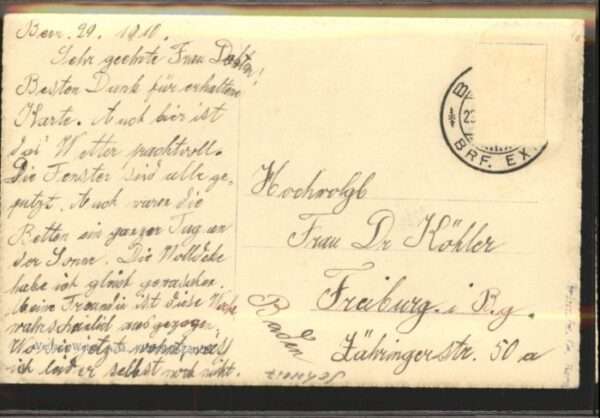 Bern. 29. 1910.
Sehr geehrte Frau Doktor!
Besten Dank für erhaltene
Karte. Auch hier ist
das Wetter prachtvoll.
Die Fenster sind alle ge-
putzt. Auch waren die
Betten ein ganzer Tag an
der Sonne. Die Wolldecke
habe ich gewaschen.
Meine Freundin ist diese Woche
wahrscheinlich ausgezogen.
Wo sie jetzt wohnt weiss
ich leider selbst noch nicht.
BRF. EX
Hochwolgb
Frau Dr Köhler
Freiburg. i Brg.
Baden
Zähringerstr. 50 a
Schweiz